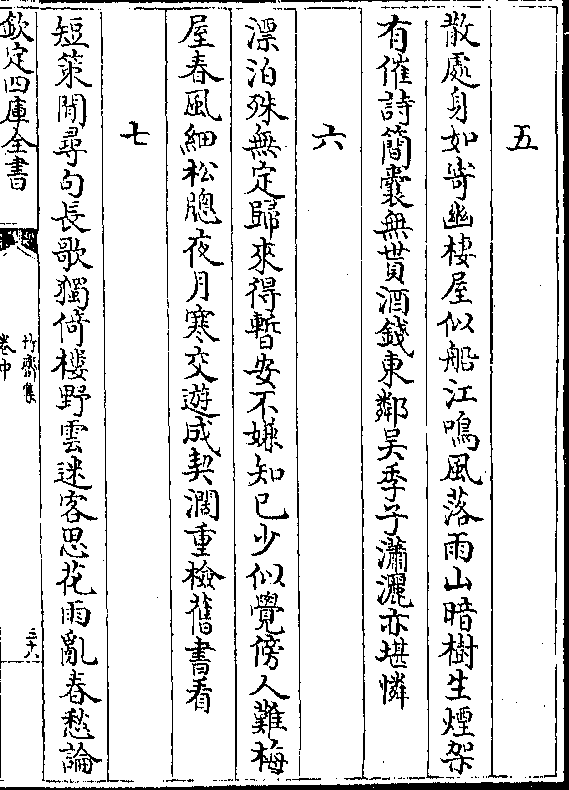 五
散處身如寄幽棲屋似船江鳴風落雨山暗樹生煙架
有催詩簡囊無貰酒錢東鄰吴季子瀟灑亦堪憐
六
漂泊殊無定歸來得暫安不嫌知己少似覺傍人難梅
屋春風細松牕夜月寒交遊成契濶重檢舊書看
七
短策閒尋句長歌獨倚樓野雲迷客思花雨亂春愁論
欽定四庫全書
竹齋集
卷中
三六